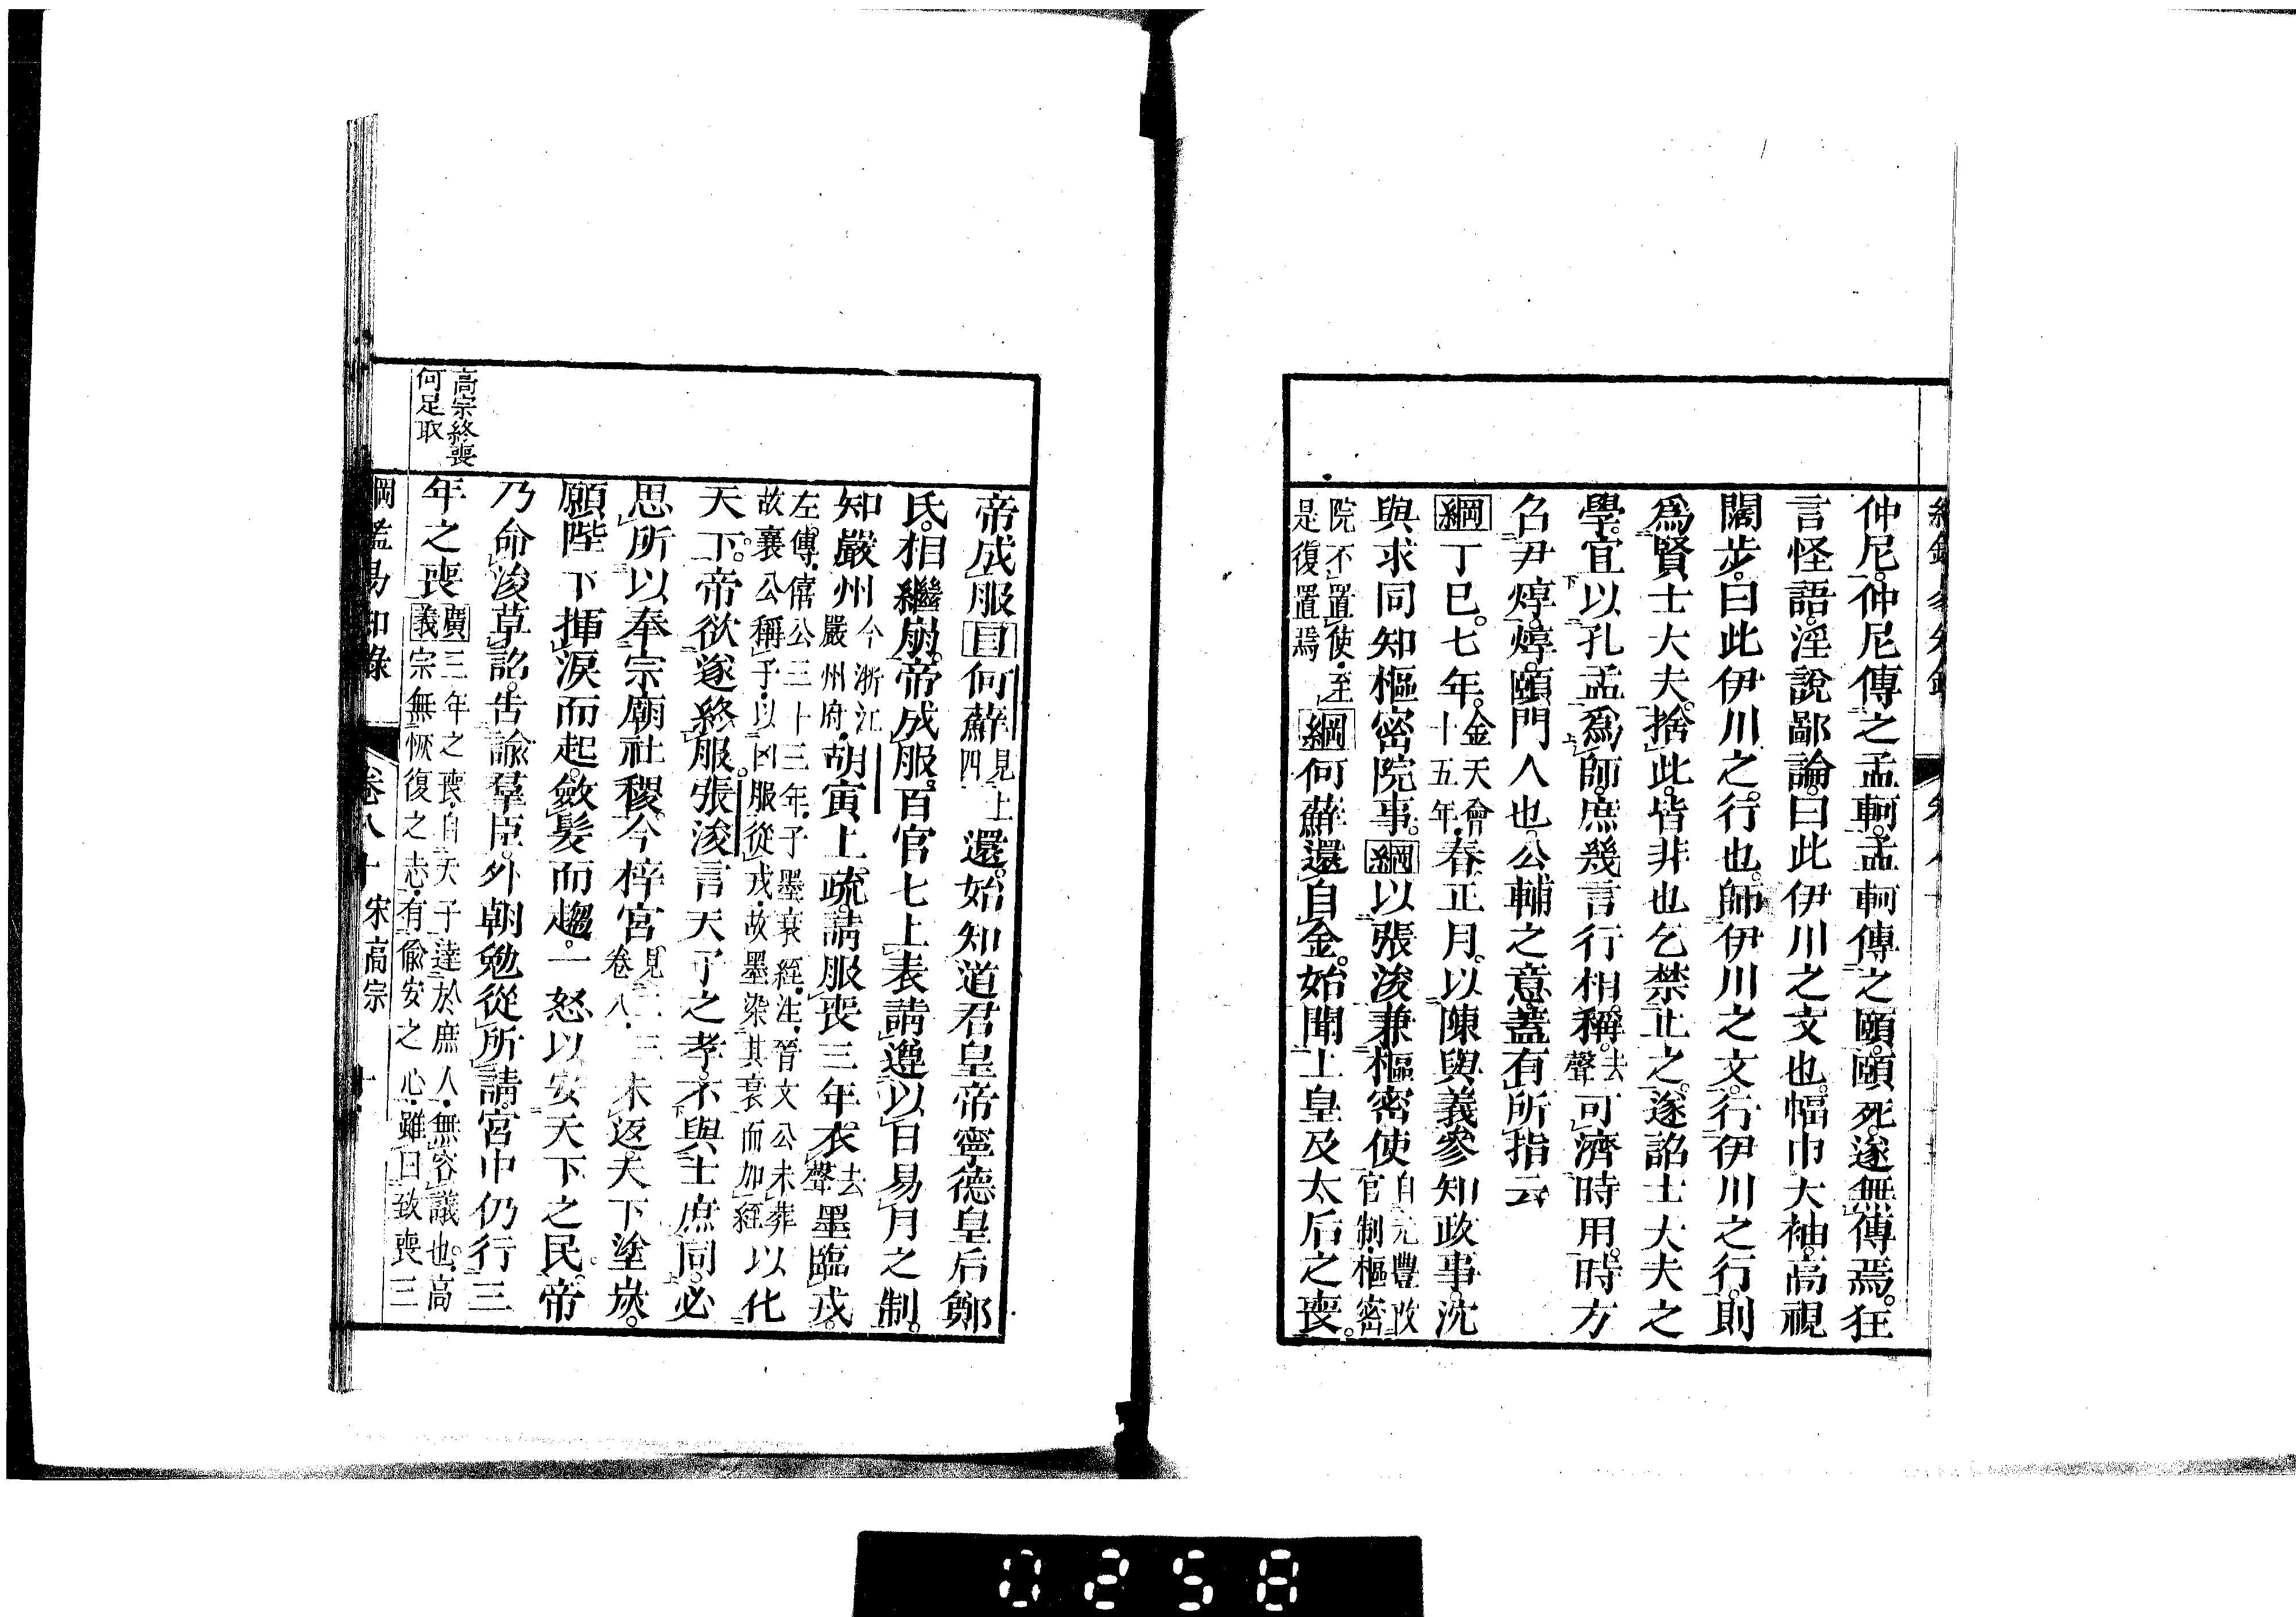 仲尼。仲尼傳之孟軻。孟軻傳之頤。頤死。遂無傳焉。狂
言怪語。淫說鄙論。曰此伊川之文也。幅巾大袖。高視
闊步。曰此伊川之行也。師伊川之文。行伊川之行。則
爲賢士大夫。捨此皆非也。乞禁止之。遂詔士大夫之
學。宜以孔孟爲師。庶幾言行相稱。去聲可濟時用。時方
召尹焞。焞頤門人也。公輔之意。蓋有所指云
綱丁巳。七年。金天會十五年。春正月。以陳與義參知政事。沈
與求同知樞密院事。綱以張浚兼樞密使自元豐改官制樞密
院不置使至是復置焉綱何蘚還自金。始聞上皇及太后之喪。
帝成服目何蘚見上四還。始知道君皇帝寧德皇后鄭
氏。相繼崩。帝成服。百官七上表請遵以日易月之制。
知嚴州今浙江嚴州府胡寅上疏。請服喪三年衣去聲墨臨戎。
左傳僖公三十三年子墨衰絰注晉文公未葬故襄公稱子以凶服從戎故墨染其衰而加絰以化
天下。帝欲遂終服。張浚言天子之孝。不與士庶同。必
思所以奉宗廟社稷。今梓宮見卷八三未返。天下塗炭。
願陛下揮淚而起。斂髮而趨。一怒以安天下之民。帝
乃命浚草詔。告諭羣臣。外朝勉從所請。宮中仍行三
年之喪廣義三年之喪自天子達於庶人無容議也。高宗無恢復之志有偷安之心雖曰致喪三
高宗終喪
何足取
綱鑑易知錄 卷八十 宋高宗
0258